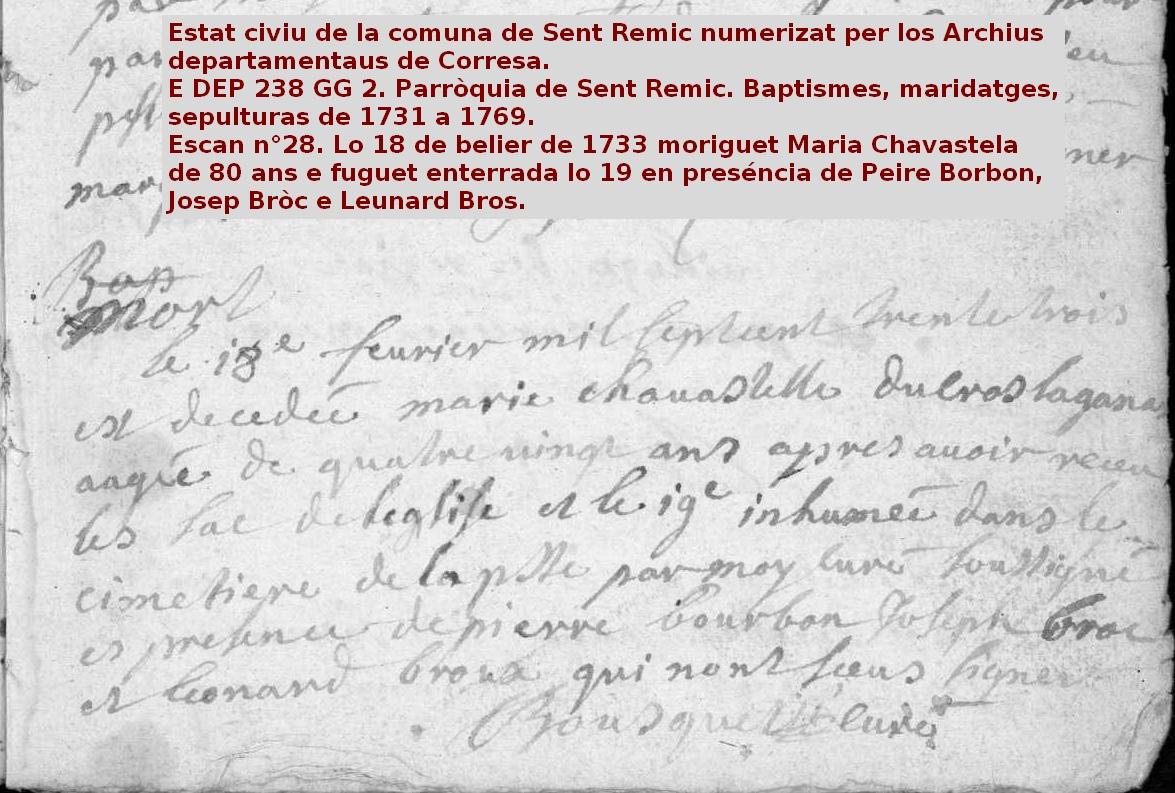 Estat civiu de la comuna de Sent Remic numerizat per los Archius
departamentaus de Corresa.
E DEP 238 GG 2. Parròquia de Sent Remic. Baptismes, maridatges,
sepulturas de 1731 a 1769.
Escan n°28. Lo 18 de belier de 1733 moriguet Maria Chavastela
de 80 ans e fuguet enterrada lo 19 en preséncia de Peire Borbon,
Josep Bròc e Leunard Bros.
mort
le 18e feurier mil sept cent trente trois
est decedeé marie chauastelle du cros lagana
aageé de quatre vingt ans apres auoir receu
les sac de leglise et le 19e inhumeé dans le
cimetiere de la psste par moy curé soussigné
es presence de pierre bourbon Joseph broc
et leonard broux qui nont sceus signer
Bousquet curé